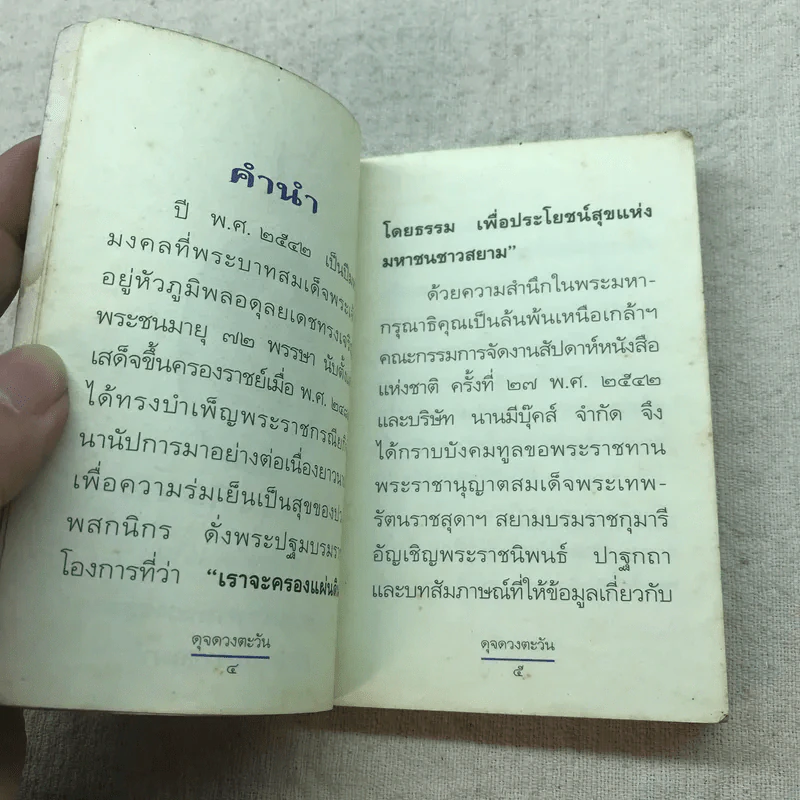 คำนำ
ปี พ.ศ. ๒๕๔๒ เป็นปี
มงคลที่พระบาทสมเด็จพระ
อยู่หัวภูมิพลอดุลยเดชทรง
พระชนมายุ ๗๒ พรรษา นับตั้ง
เสด็จขึ้นครองราชย์เมื่อ พ.ศ.
ได้ทรงบำเพ็ญพระราชกรณีย
นานัปการมาอย่างต่อเนื่องยาว
เพื่อความร่มเย็นเป็นสุขของ
พสกนิกร ดั่งพระปฐมบรมรา
โองการที่ว่า “เราจะครองแผ่นดิ
ดุจดวงตะวัน
๔
โดยธรรม เพื่อประโยชน์สุขแห่ง
มหาชนชาวสยาม”
ด้วยความสำนึกในพระมหา-
กรุณาธิคุณเป็นล้นพ้นเหนือเกล้าฯ
คณะกรรมการจัดงานสัปดาห์หนังสือ
แห่งชาติ ครั้งที่ ๒๗ พ.ศ. ๒๕๔๒
และบริษัท นานมีบุ๊คส์ จำกัด จึง
ได้กราบบังคมทูลขอพระราชทาน
พระราชานุญาตสมเด็จพระเทพ-
รัตนราชสุดาฯ สยามบรมราชกุมารี
อัญเชิญพระราชนิพนธ์ ปาฐกถา
และบทสัมภาษณ์ที่ให้ข้อมูลเกี่ยวกับ
ดุจดวงตะวัน
๕